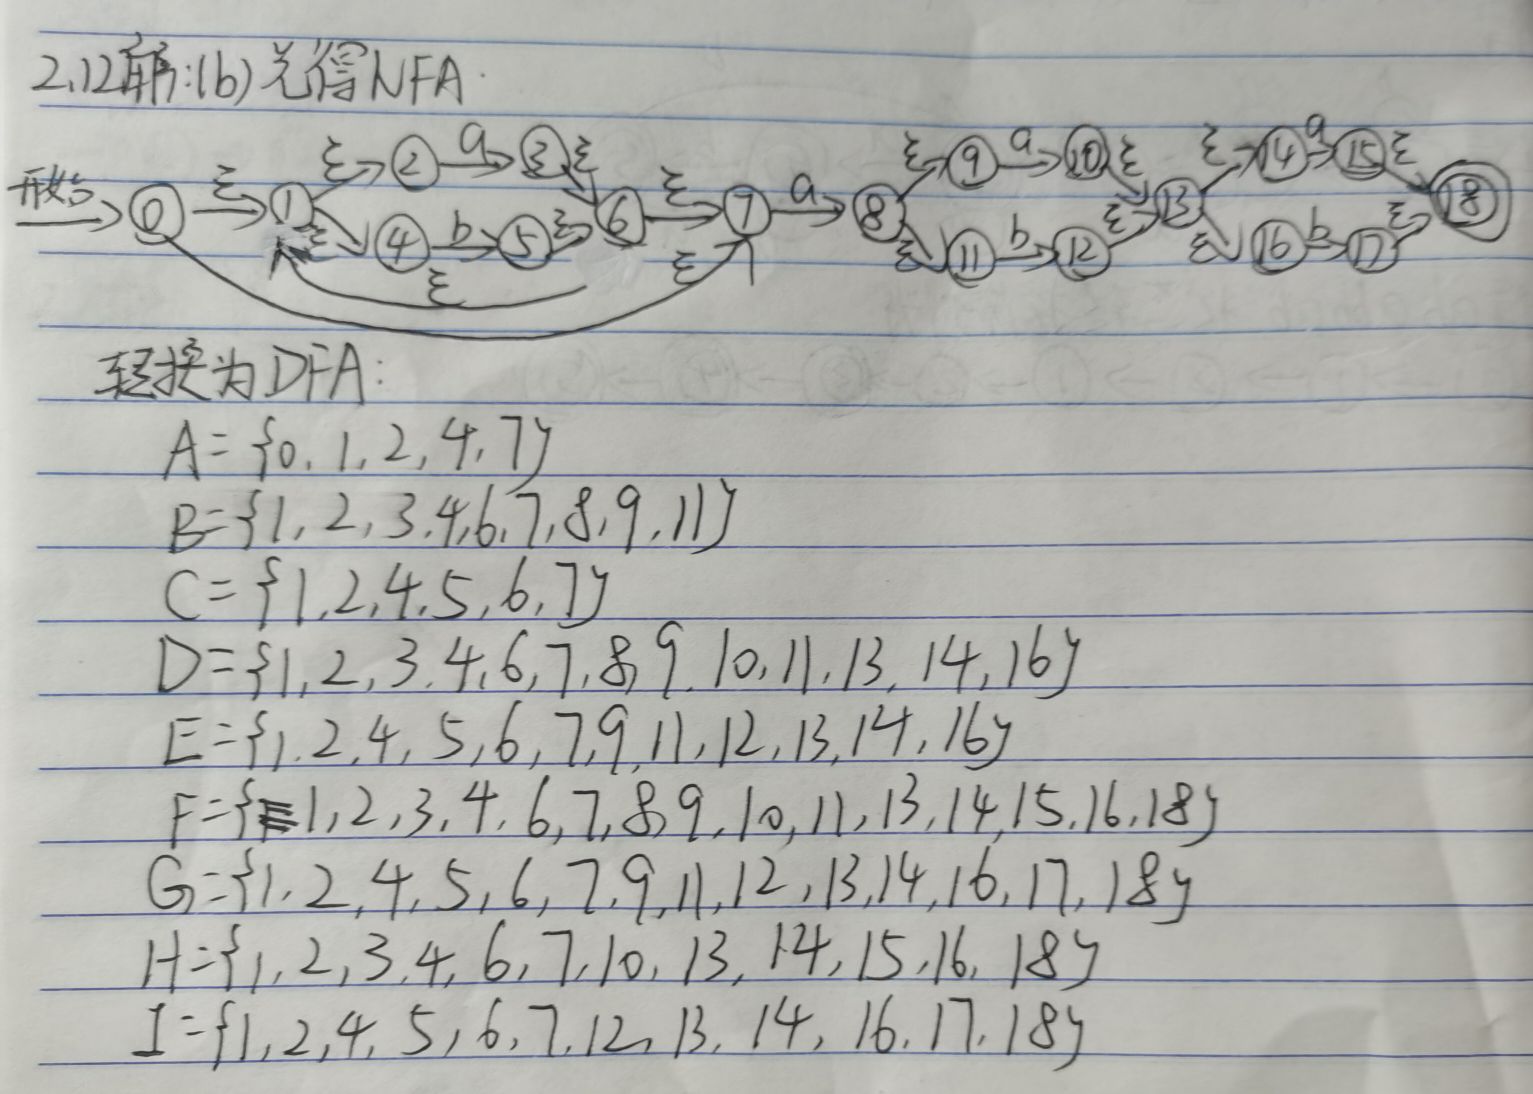 2.12解:(b)先得NFA.
开始 0 ξ 1 ξ 2 a 3 ξ ξ 4 b 5 ξ 6 ξ 7 a 8 ξ 9 a 10 ξ ξ 11 b 12 ξ 13 ξ 14 a 15 ξ ξ 16 b 17 ξ 18
ξ ξ
转换为DFA:
A={0,1,2,4,7}
B={1,2,3,4,6,7,8,9,11}
C={1,2,4,5,6,7}
D={1,2,3,4,6,7,8,9,10,11,13,14,16}
E={1,2,4,5,6,7,9,11,12,13,14,16}
F={1,2,3,4,6,7,8,9,10,11,13,14,15,16,18}
G={1,2,4,5,6,7,9,11,12,13,14,16,17,18}
H={1,2,3,4,6,7,10,13,14,15,16,18}
I={1,2,4,5,6,7,12,13,14,16,17,18}